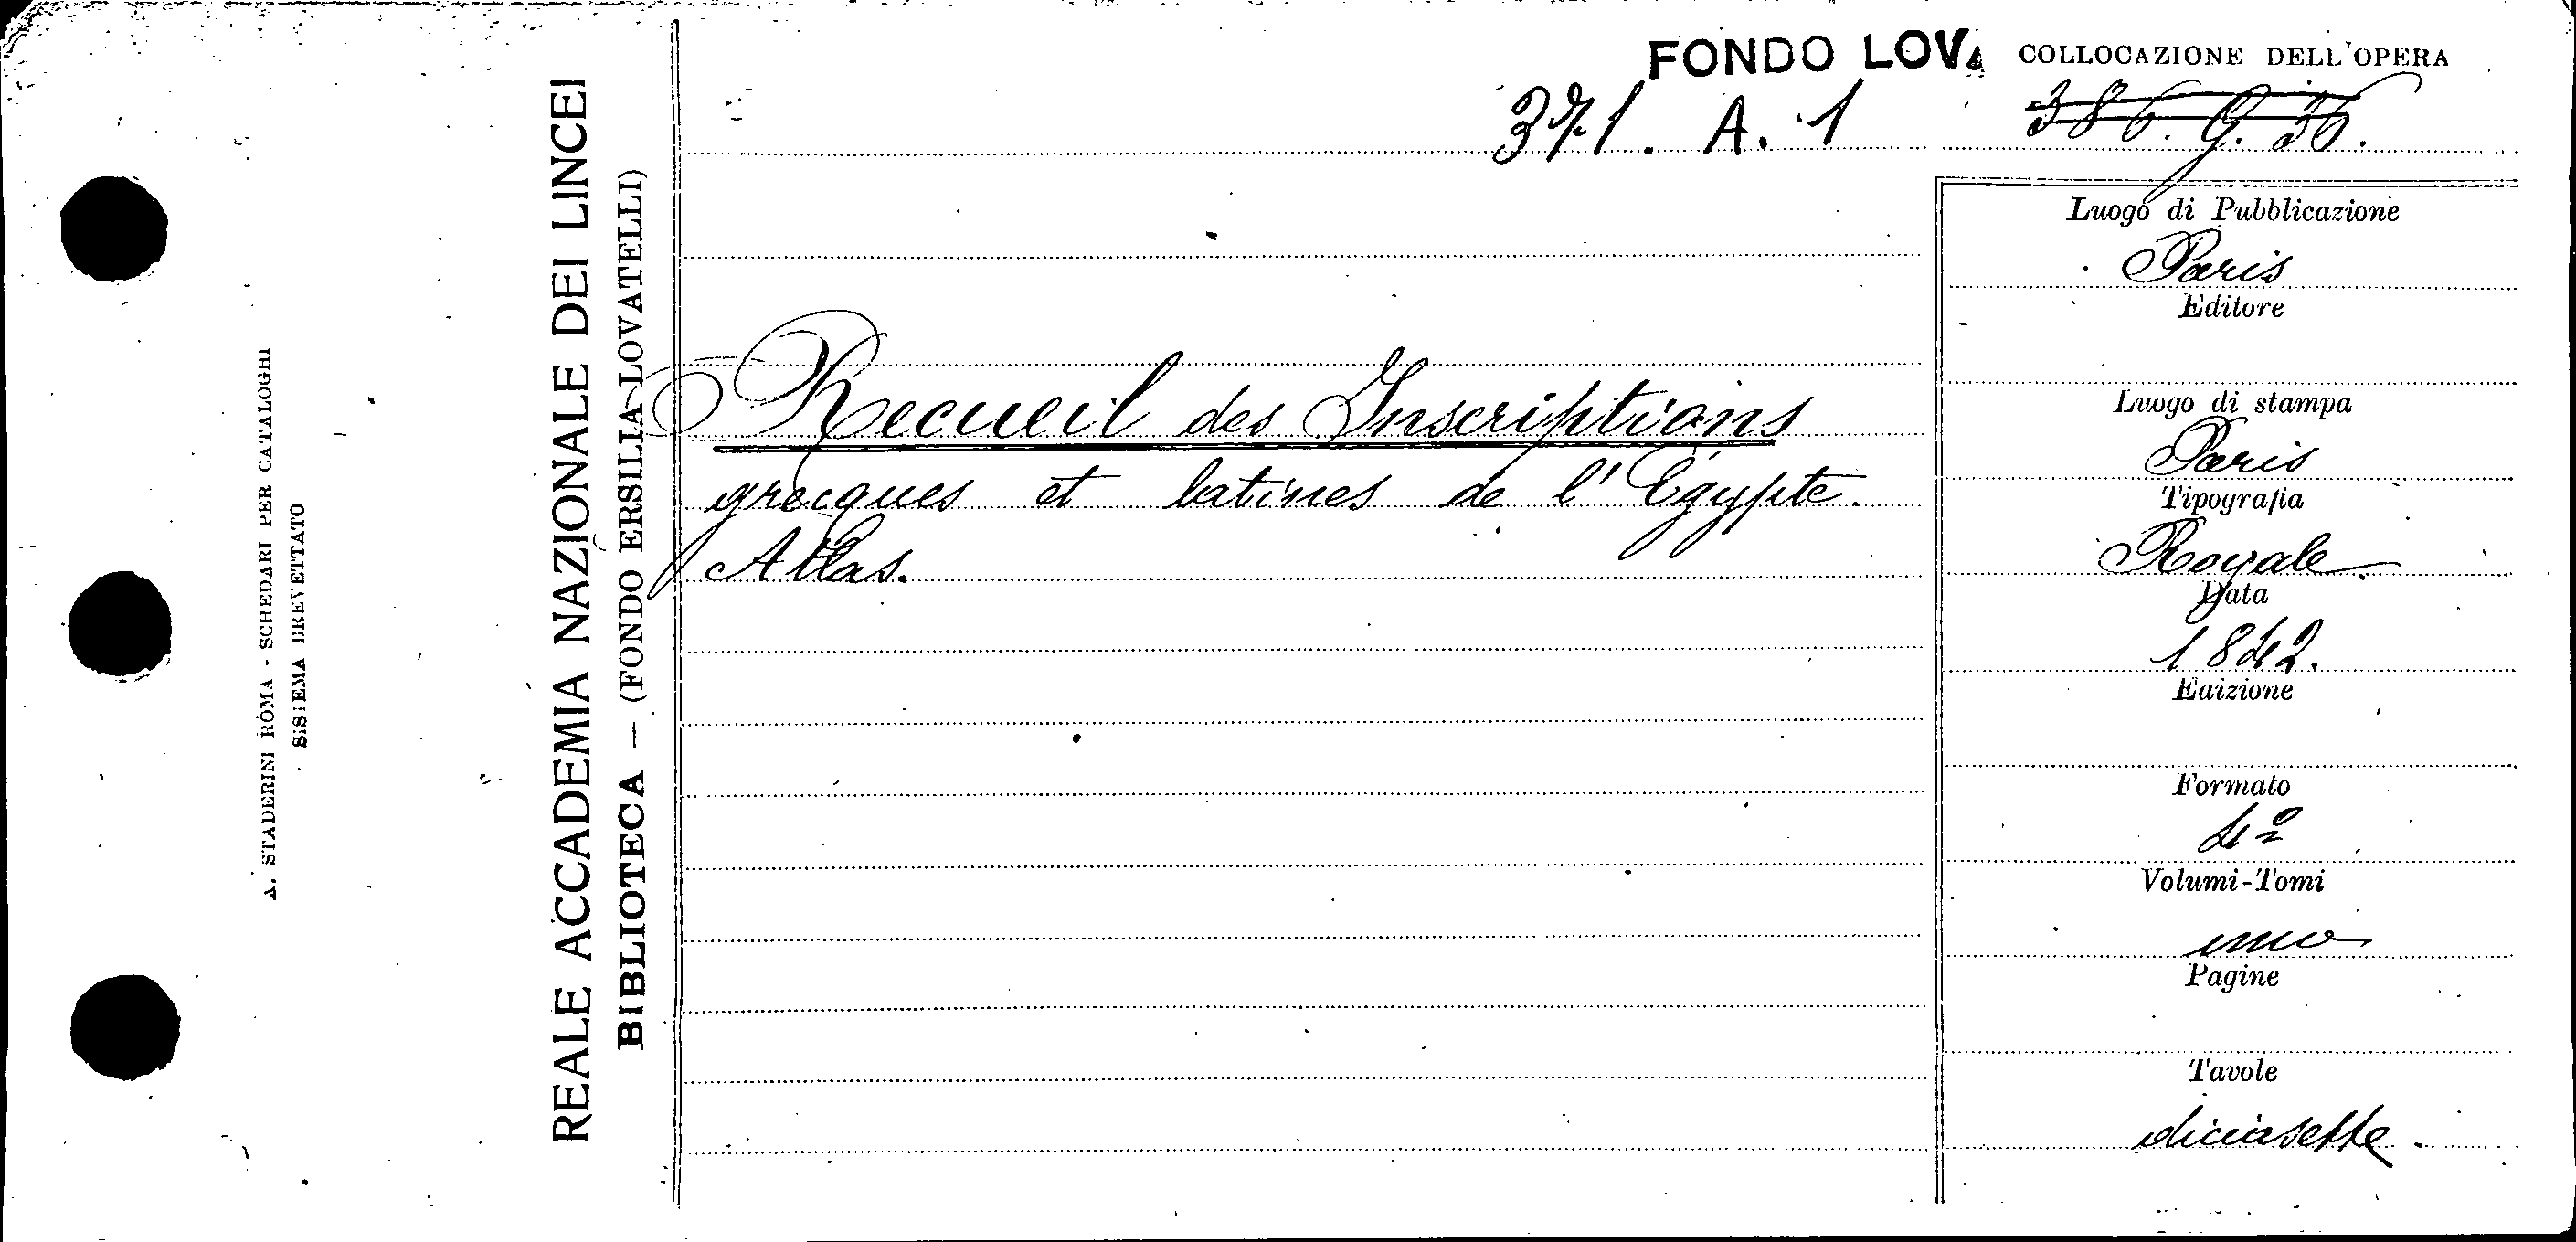 FONDO LOVA COLLOCAZIONE DELL'OPERA
371. A. 1 386. G. 36.
Luogo di Pubblicazione
Paris
Editore
Recueil des Inscriptions
grecques et latines de l'Egypte.
Atlas.
Luogo di stampa
Paris
Tipografia
Royale
Data
1842.
Edizione
Formato
4º
Volumi-Tomi
uno
Pagine
Tavole
diciasette
REALE ACCADEMIA NAZIONALE DEI LINCEI
BIBLIOTECA — (FONDO ERSILIA LOVATELLI)
A. STADERINI ROMA - SCHEDARI PER CATALOGHI
SISTEMA BREVETTATO